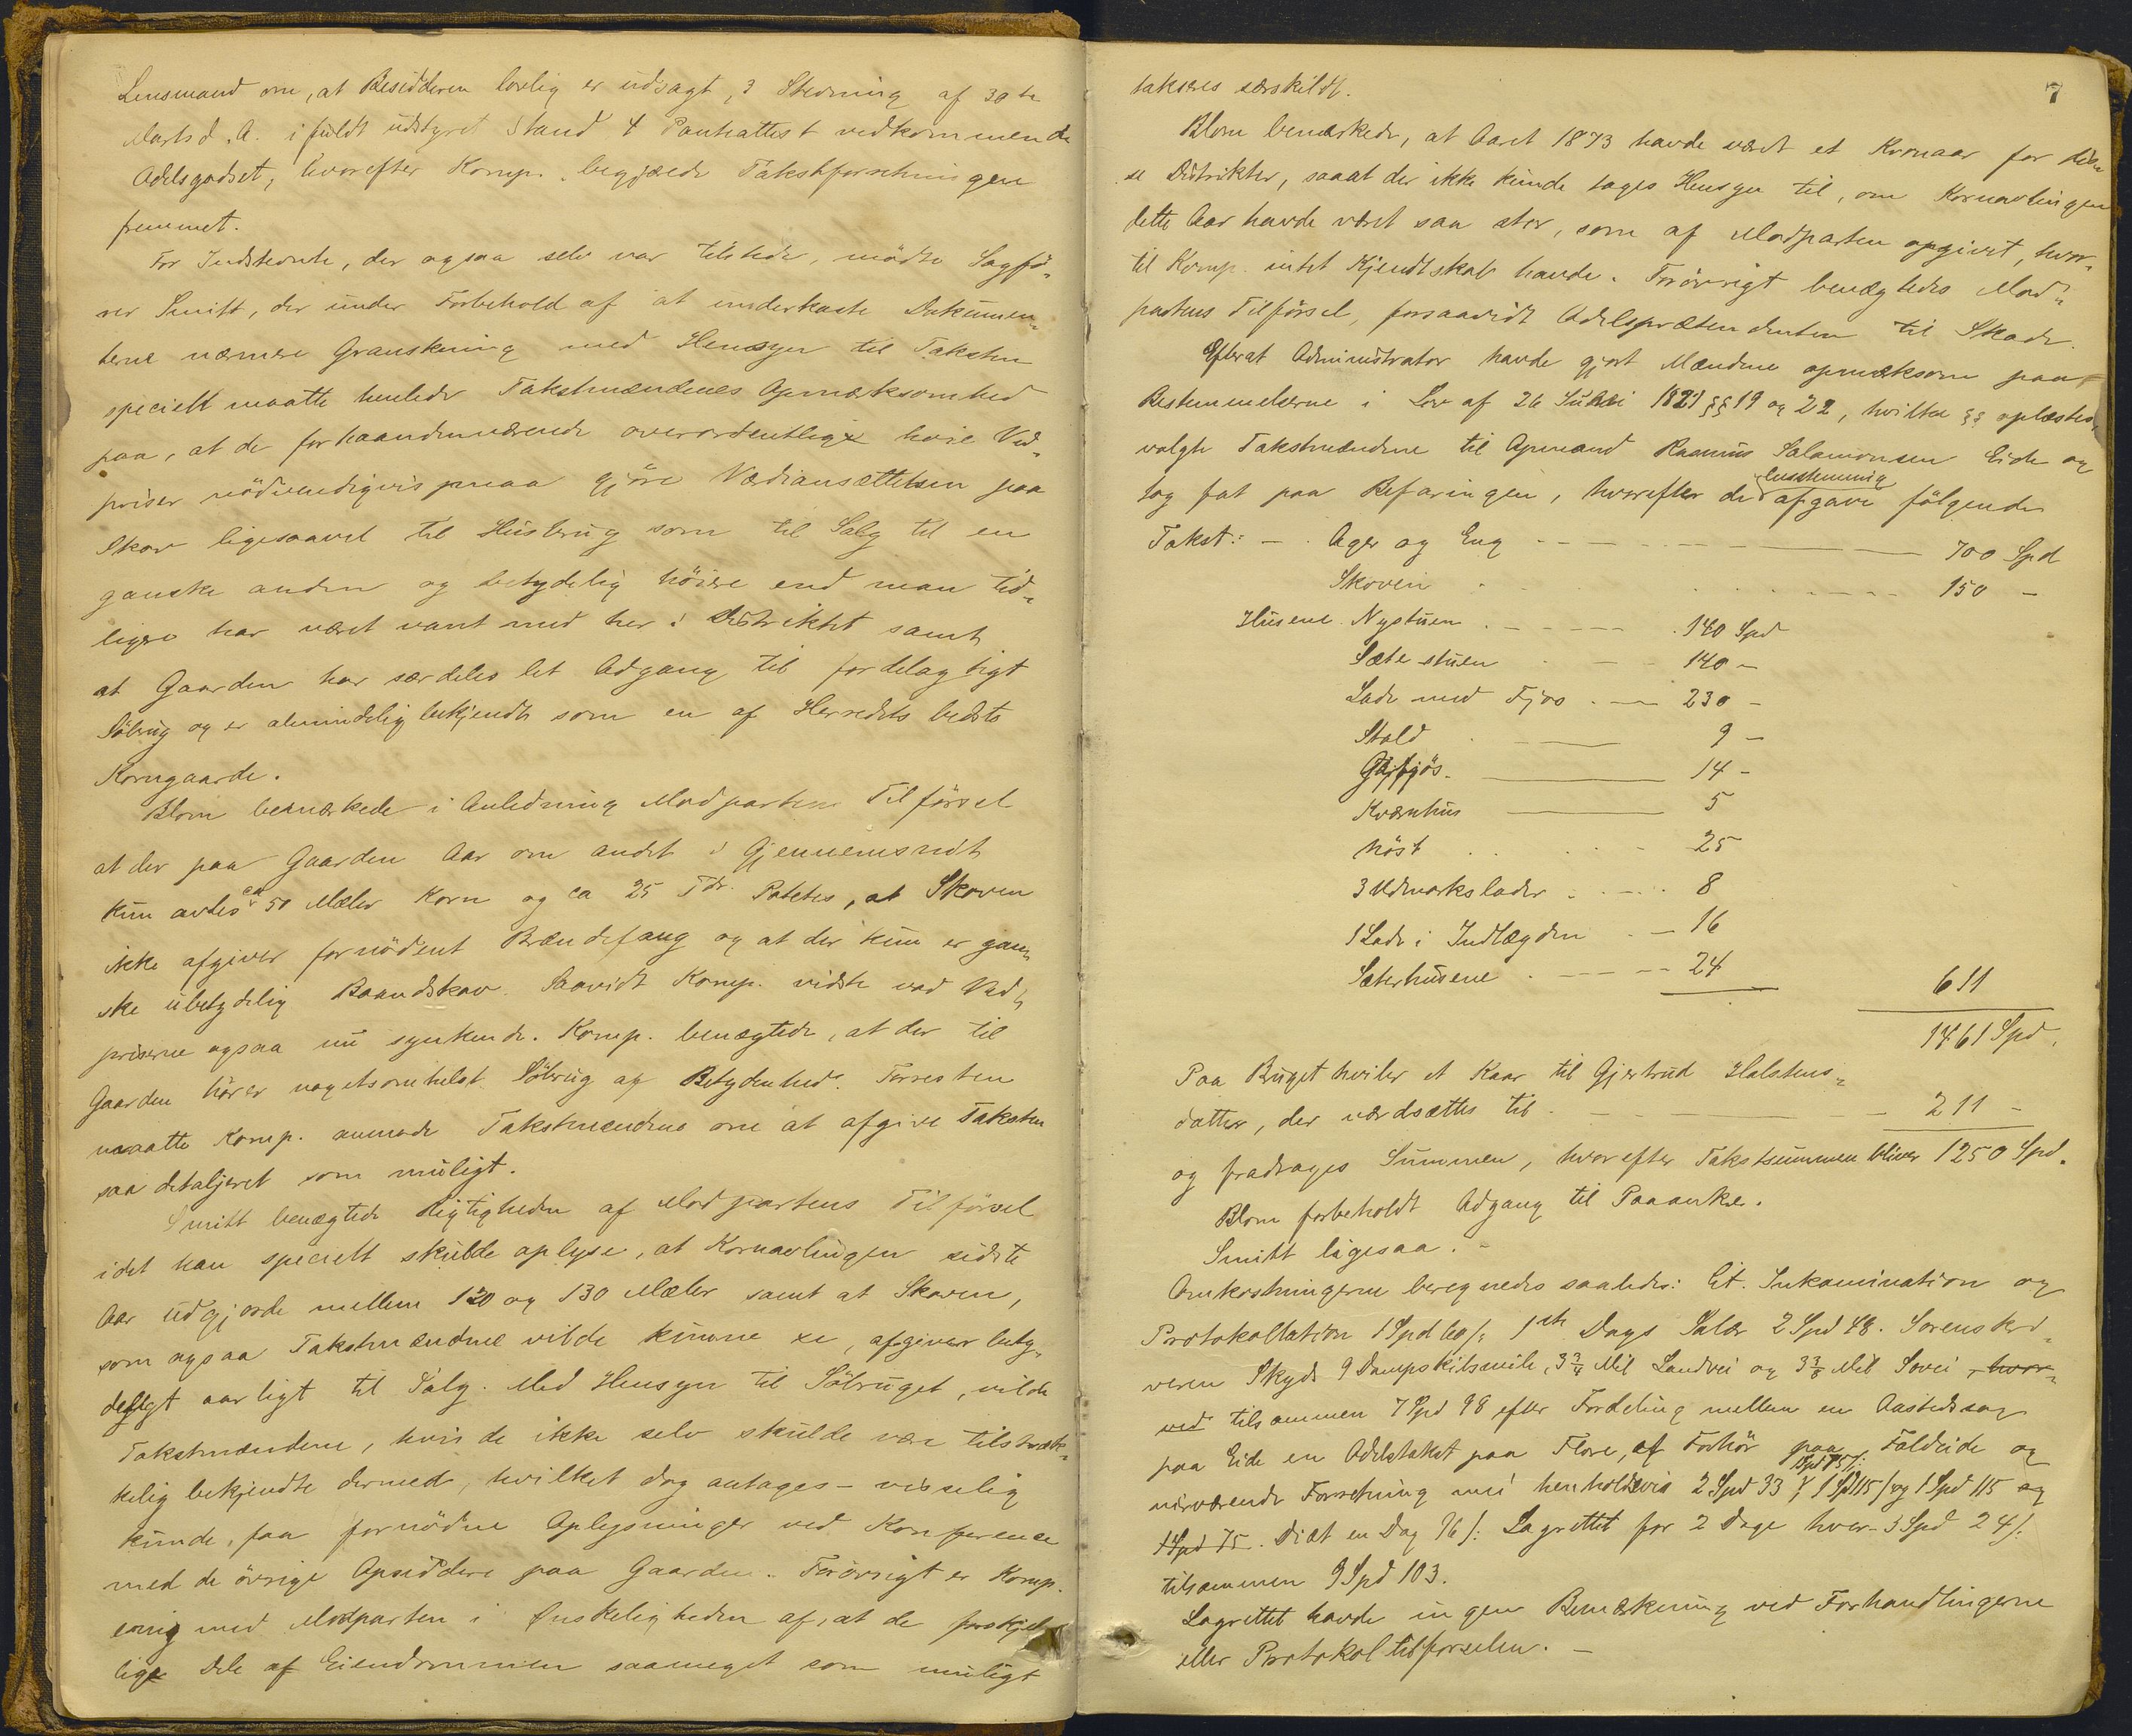 Lensmand om, at Besidderen lovlig er udsagt, 3 Stevning af 30te
Marts d. A. i fuldt udstyret Stand 4 Pantattest vedkommende
Odelsgodset, hvorefter Komp. begjærede Takstforretningen
fremmet.
For Indstevnte, der ogsaa selv var tilstede, mødte Sagfø-
rer Smitt, der under Forbehold af at underkaste Dokumen-
terne nærmere Granskning med Hensyn til Taksten
specielt maatte henlede Takstmændenes Opmærksomhed
paa, at de forhaandenværende overordentlige høie Ved-
priser nödvendigvis maa gjöre Værdiansættelsen paa
Skov ligesaavel til Husbrug som til Salg til en
ganske anden og betydelig höiere end man tid-
ligere har været vant med her i Distriktet samt
at Gaarden har særdeles let Adgang til fordelagtigt
Söbrug og er almindelig bekjendt som en af Herredets bedste
Korngaarde.
Blom bemærkede i Anledning Modpartens Tilförsel
at der paa Gaarden Aar om andet i Gjennemsnit
kun avles ca 50 Mæler Korn og ca 25 Tdr. Potetes, at Skoven
ikke afgiver fornödent Brændefang og at der kun er gan-
ske ubetydelig Baandskov. Saavidt Komp. vidste var Ved-
priserne ogsaa nu synkende. Komp. benægtede, at der til
Gaarden hörer nogetsomhelst Söbrug af Betydenhed. Forresten
maatte Komp. anmode Takstmændene om at afgive Taksten
saa detaljeret som muligt.
Smitt benægtede Rigtigheden af Modpartens Tilförsel
idet han specielt skulde oplyse, at Kornavlingen sidste
Aar udgjorde mellem 120 og 130 Mæler samt at Skoven,
som ogsaa Takstmændene vilde kunne se, afgiver bety-
deligt aarligt til Salg. Med Hensyn til Söbruget, vilde
Takstmændene, hvis de ikke selv skulde være tilstræk-
kelig bekjendte dermed, hvilket dog antages - visselig
kunde faa fornödne Oplysninger ved Konference
med de övrige Opsiddere paa Gaarden. Forövrigt er Komp.
enig med Modparten i Önskeligheden af, at de forskjel-
lige Dele af Eiendommen saameget som muligt
7
takseres særskildt.
Blom bemærkede, at Aaret 1873 havde været et Kornaar for dis-
se Distrikter, saaat der ikke kunde tages Hensyn til, om Kornavlingen
dette Aar havde været saa stor, som af Modparten opgivet, hvor-
til Komp. intet Kjendskab havde. Forövrigt benægtedes Mod-
partens Tilförsel, forsaavidt Odelsprætendenten til Skade.
Efterat Administrator havde gjort Mændene opmærksom paa
Bestemmelserne i Lov af 26 Juni 1821 §§ 19 og 22, hvilke §§ oplæstes,
valgte Takstmændene til Opmand Rasmus Salamonsen Eide og
tog fat paa Befaringen, hvorefter de enstemmig afgave fölgende
Takst: - Ager og Eng - 700 Spd
Skoven - 150 -
Husene. Nystuen - 140 Spd
Sæterstuen - 140 -
Lade med Fjos - 230 -
Stald - 9 -
Gjetfjös - 14 -
Kværnhus - 5
Nöst - 25
3 Udmarkslader - 8
1 Lade i Indlægden - 16
Sæterhusene - 24
611
1461 Spd.
Paa Bruget hviler et Kaar til Gjertrud Halstens-
datter, der værdsættes til - 211 -
og fradrages Summen, hvorefter Takstsummen bliver 1250 Spd.
Blom forbeholdt Adgang til Paaanke.
Smitt ligesaa. -
Omkostningerne beregnedes saaledes: Et. Inkamination og
Protokollation 1 Spd 60 /: 1 Dags Salær 2 Spd 48. Sorenskri-
veren Skyds 9 Dampskibsmile, 3 3/4 Mil Landvei og 3 3/8 Mil Sovei, hvor-
ved tilsammen 7 Spd 98 efter Fordeling mellem en Aastedssag
paa Eide en Odelstakst paa Flore, af Forhör paa Faldeide og
nærværende Forretning med henholdsvis 2 Spd 33 /, 1 Spd 75 /: 1 Spd 115 / og 1 Spd 115 og
1 Spd 75. Diæt en Dag 96 /: Lagrettet for 2 Dage hver 3 Spd 24 /:
tilsammen 9 Spd 103.
Lagrettet havde ingen Bemærkning ved Forhandlingerne
eller Protokoltilforselen. -